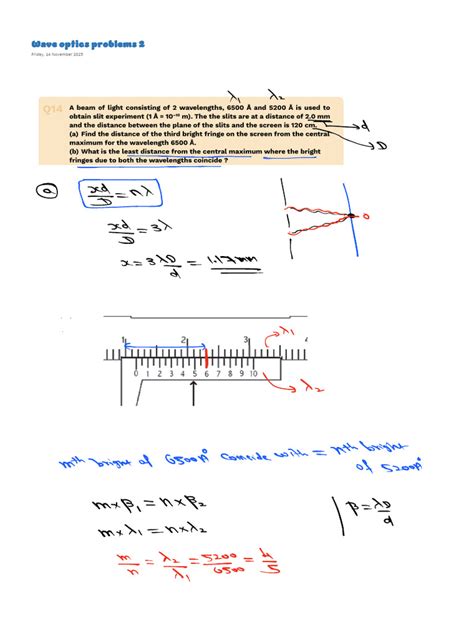 Wave optics problems 2
Friday, 24 November 2023
λ₁ λ₂
Q14 A beam of light consisting of 2 wavelengths, 6500 Å and 5200 Å is used to
obtain slit experiment (1 Å = 10⁻¹⁰ m). The the slits are at a distance of 2.0 mm
and the distance between the plane of the slits and the screen is 120 cm.
(a) Find the distance of the third bright fringe on the screen from the central
maximum for the wavelength 6500 Å.
(b) What is the least distance from the central maximum where the bright
fringes due to both the wavelengths coincide ?
d
D
a
xd/D = nλ
xd/D = 3λ
x = 3λD/d = 1.17 mm
0
1 2 3 4
λ₁
0 1 2 3 4 5 6 7 8 9 10
λ₂
mth bright of 6500A° coincide with = nth bright
of 5200A°
m×β₁ = n×β₂
m×λ₁ = n×λ₂
β = λD/d
m/n = λ₂/λ₁ = 5200/6500 = 4/5